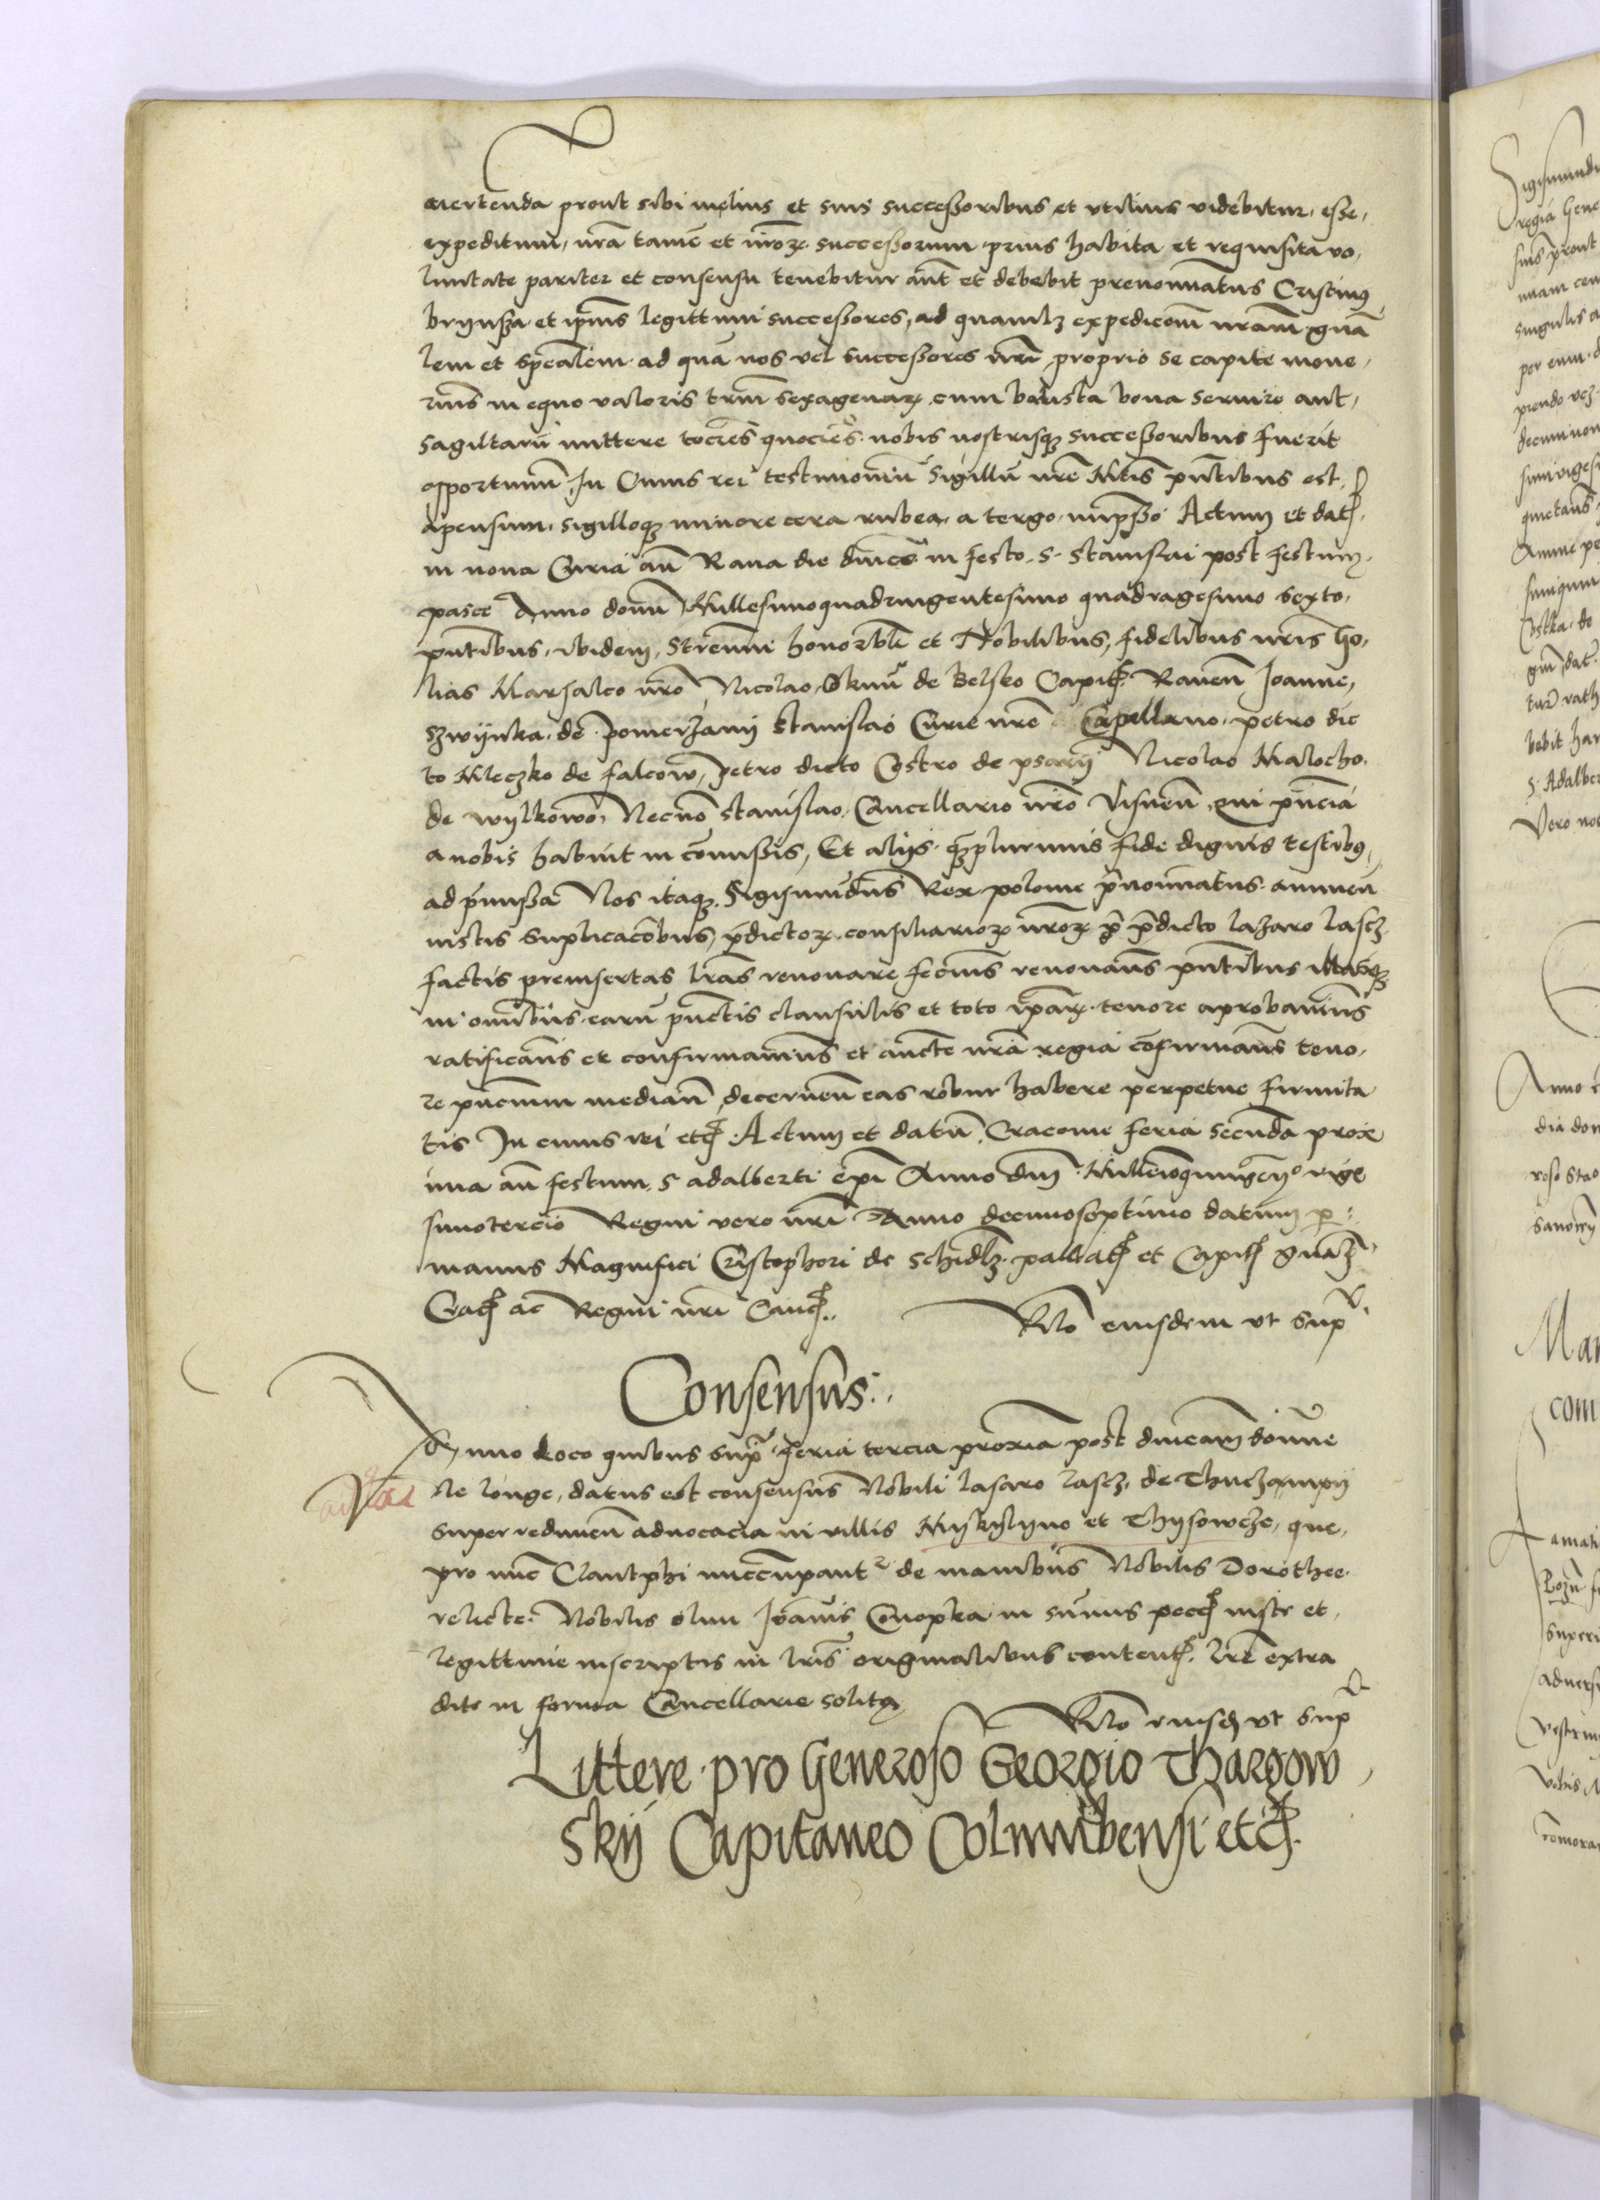 uertenda prout sibi melius et suis successoribus et vtilius videbitur esse
expeditum, nrā tamē et nroꝝ successorum prius habita et requisita vo,
luntate pariter et consensu tenebitur aūt et debebit prenomiatus Cristinus
brijnssa et ipius legittimi successores, ad quamlꝫ expedicom nram gnā
lem et spealem ad quā nos vel successores nri proprio se capite moue,
rimˢ in equo valoris trium sexagenaꝝ cum balista bona seruire aut,
sagittariū mittere tocies quocies nobis nostrisqꝫ successoribus fuerit
oportunū In Cuius rei testimoniū Sigillū nrē Mtis pntibus est
apensum, sigilloqꝫ minore cera rubea, a tergo, impsso Actum et dat
in noua Curia añ Raua die dnico in festo S Stanislai post festum
pasce Anno domi Millesimoquadringentesimo quadragesimo sexto,
pntibus, ibidem, Strenuis honorbli et Nobilibus, fidelibus nris Go,
lias Marsalco nro Nicolao Oknū de Belsko Capit Rauen Joanne,
Szwijnka de Pomerzanij Stanislao Curie nre Capellano, petro dic
to Mleczko de falcow, petro dicto Costro de psarij Nicolao Malocho
de wylkowo, Necno Stanislao, Cancellario nro Visnen, qui pncia
a nobis habuit in comissis, Et alijs qꝫplurimis fide dignis testibꝯ,
ad pmissa Nos itaqꝫ Sigismūdus Rex polonie pnominatus annuen
iustis suplicacobus, pdictoꝝ consiliarioꝝ nroꝝ p pdicto lazaro lascz
factis preinsertas lras renouare fecimˢ renouamˢ pntibus illasqꝫ
in omibus earū punctis clausulis et toto ipaꝝ tenore aprobauimˢ
ratificauimˢ et confirmauimˢ et aucte nra regia cofirmamˢ teno,
re pncium median decernen eas robur habere perpetue firmita
tis In cuius rei etc Actum et datū Cracouie feria secunda prox
ima añ festum S adalberti epi Anno dni Millemoquingeno vige
simotercio Regni vero nri Anno decimoseptimo datum p
manus Magnifici Cristophori de Schidlꝫ pallat et Capit gnālꝫ
Crac ac Regni nri Canc
Rlo eiusdem vt Supᵃ
Consensus
Anno loco quibus supra feria tercia proxia post dnicam Domie
ne longe, datus est consensus Nobili lasaro lascz, de Thuczampij
super redimen aduocacia in villis Myskijlyno et Thysowcze, que,
pro nuc Clantphi nuccupantʳ de manibus Nobilis Dorothee
relicte Nobilis olim Joannis Conopka in sumis pecc iuste et,
legittimie inscriptis in lris originalibus content lre extra
dite in forma Cancellarie solita
Rlo eiusd vt supᵃ
Littere pro Generoso Georgio Thargow
Skij Capitaneo Colmibensi etc